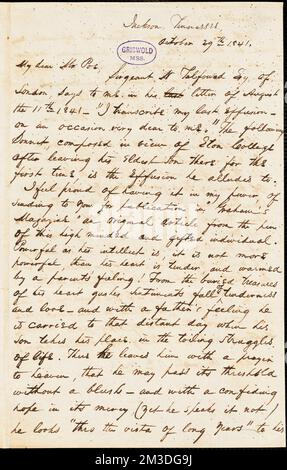 Jackson Tennessee
October 29th 1841.
GRISWOLD
MSS.
My dear Mr Poe,
Sergeant N. Talfourd Esq. of
London says to me in his letter of August
the 11th 1841 – "I transcribe my last effusion –
on an occasion very dear to me." The following
Sonnet, composed in view of Eton College
after leaving his Eldest Son there for the
first time, is the Effusion he alludes to.
I feel proud of having it in my power, of
sending to you for publication in "Graham's
Magazine" an original article from the pen
of this high minded and gifted individual.
Powerful as his intellect is, it is not more
powerful than his heart is tender and warmed
by a parents' feeling! From the buried treasures
of his heart gushes sentiments full of tenderness
and love – and with a father's feeling he
is carried to that distant day when his
Son takes his place in the toiling struggles
of life. Thus he leaves him with a prayer
to heaven, that he may pass its threshold
without a blush – and with a confiding
hope in its mercy (yet he speaks it not)
he looks "thro the vista of long years" to his
alamy
Image ID: 2M3DG9J
www.alamy.com